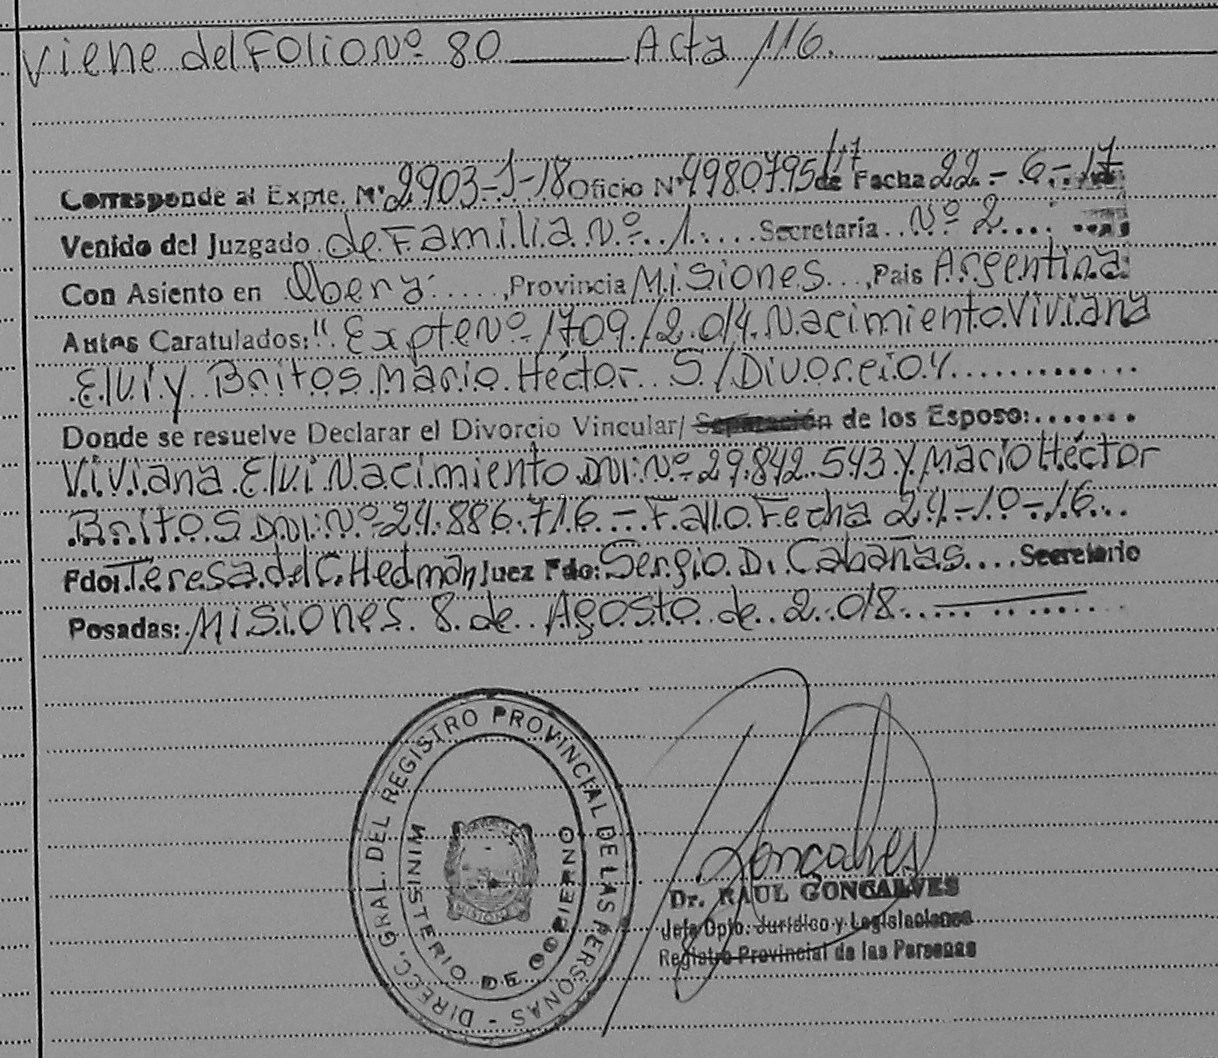 Viene del Folio Nº 80 Acta 116.
Corresponde al Expte. Nº 2903-J-18 Oficio Nº 4980795/17 de Fecha 22-6-17
Venido del Juzgado de Familia Nº 1. Secretaria Nº 2
Con Asiento en Oberá, Provincia Misiones, Pais Argentina
Autos Caratulados: "Expte Nº 1709/2014. Nacimiento Viviana
Elvi y Britos Mario Héctor S/Divorcio y
Donde se resuelve Declarar el Divorcio Vincular/ Separación de los Esposo:
Viviana Elvi Nacimiento DNI: Nº 29.842.543 y Mario Héctor
Britos DNI: Nº 24.886.716 - Fallo Fecha 24-10-16
Fdo: Teresa del C. Hedman Juez Fdo: Sergio D. Cabañas Secretario
Posadas: Misiones 8 de Agosto de 2018
DIRECC. GRAL. DEL REGISTRO PROVINCIAL DE LAS PERSONAS -
MINISTERIO DE GOBIERNO
MISIONES
Goncalves
Dr. RAUL GONCALVES
Jefe Dpto. Jurídico y Legislaciones
Registro Provincial de las Personas